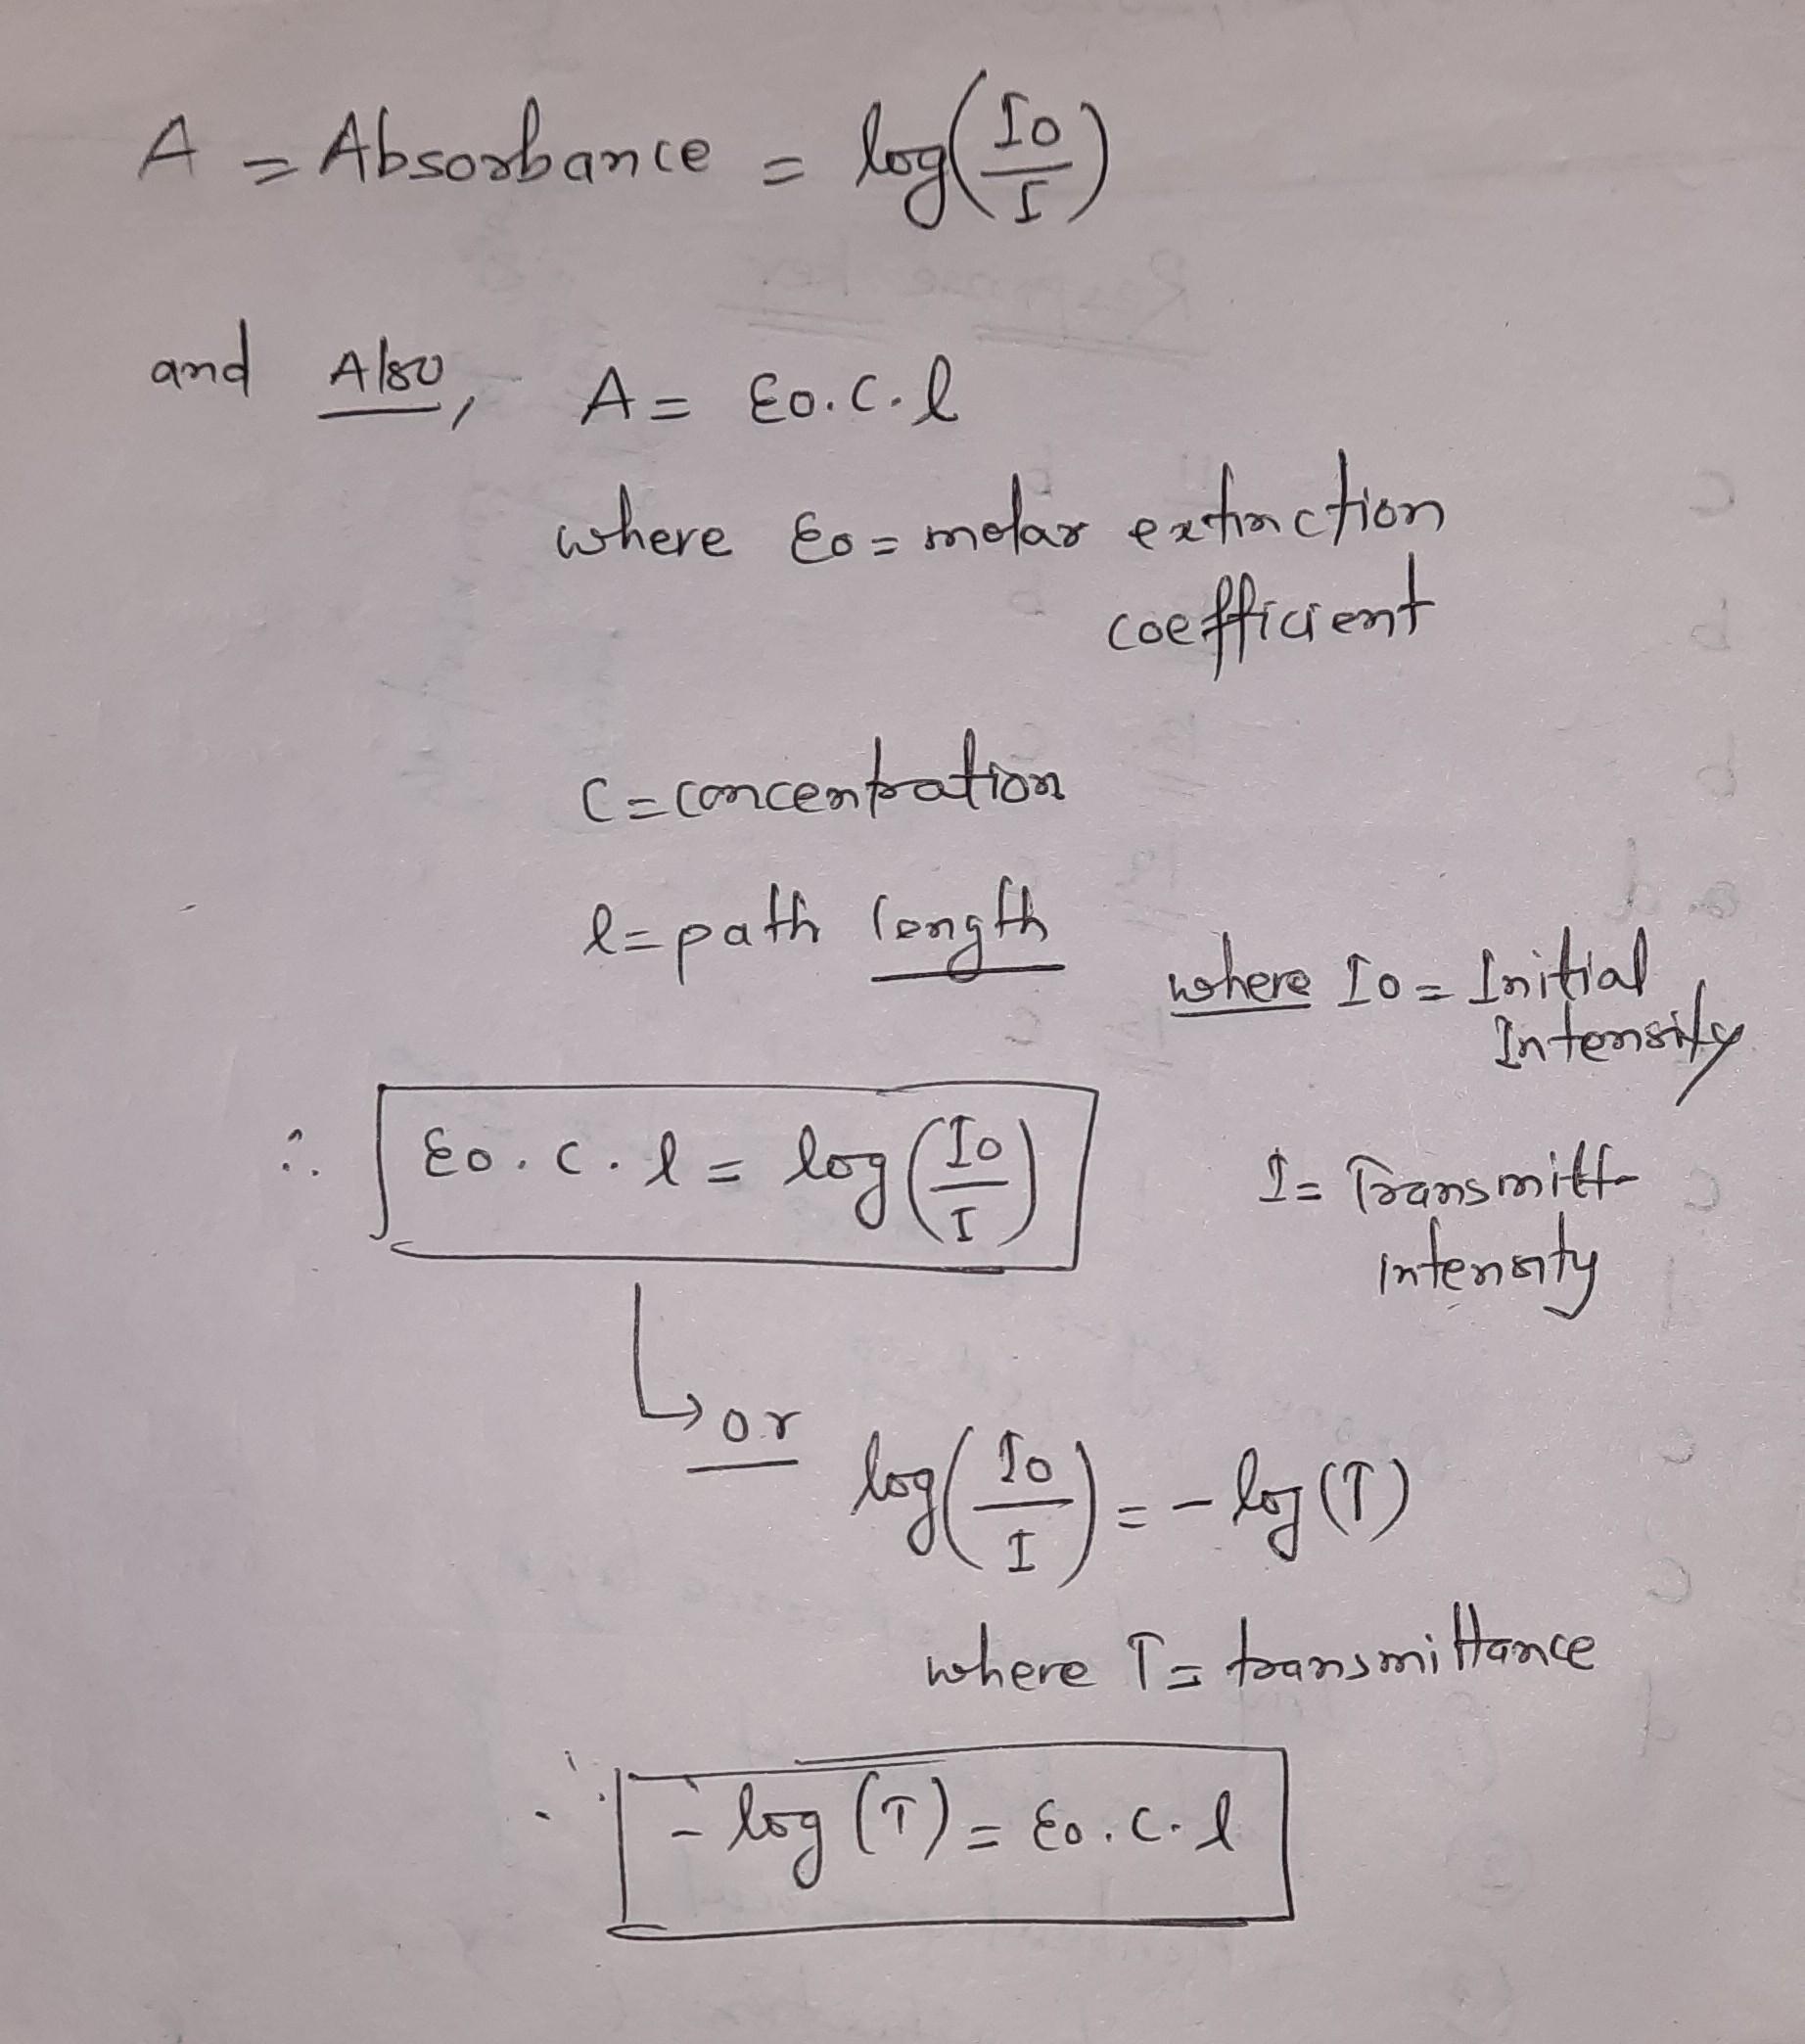 A = Absorbance = log(I0/I)
and Also, A = ε0.C.l
where ε0 = molar extinction
coefficient
C = concentration
l = path length
where I0 = Initial
Intensity
∴ ε0.C.l = log(I0/I)
I = Transmitt
intensity
↳ or log(I0/I) = - log(T)
where T = transmittance
∴ - log(T) = ε0.C.l